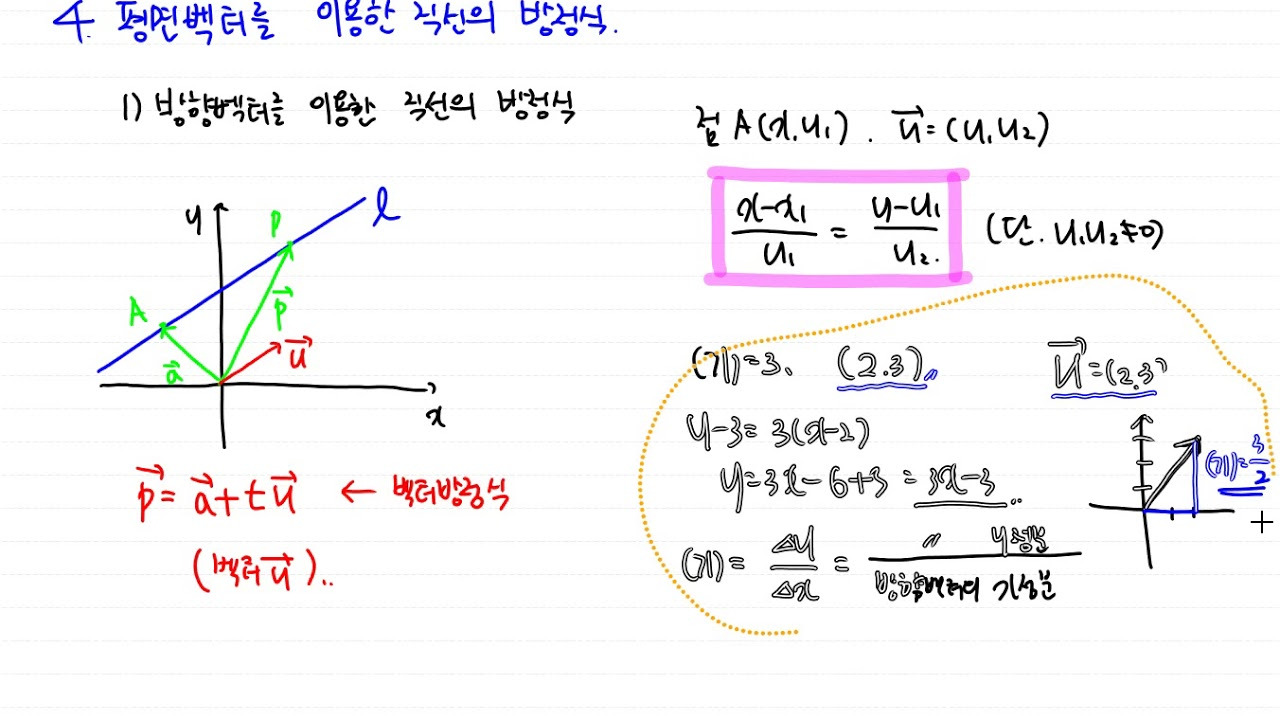 4. 평면벡터를 이용한 직선의 방정식.
1) 방향벡터를 이용한 직선의 방정식
y
P
l
A
p⃗
u⃗
a⃗
x
p⃗ = a⃗ + t u⃗ ← 벡터방정식
(벡터 u⃗)..
점 A(x, y₁). u⃗ = (u₁, u₂)
(x-x₁)/u₁ = (y-y₁)/u₂. (단. u₁u₂≠0)
(기)=3、 (2.3)〃 u⃗=(2.3)
y-3= 3(x-2)
y=3x-6+3 = 3x-3 ..
(기)=3/2
(기)= Δy/Δx = 〃 y성분/방향벡터의 x성분